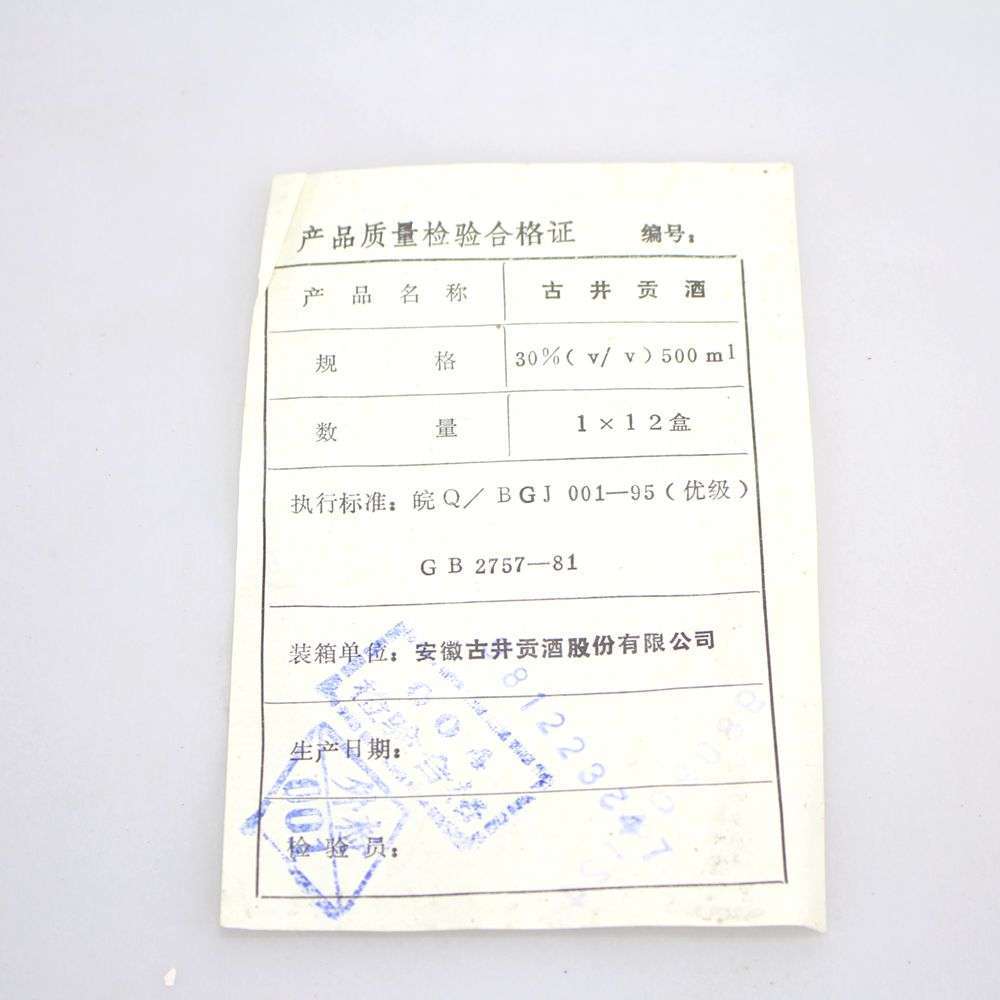 产品质量检验合格证 编号:
产品名称 古井贡酒
规格 30%(v/v)500ml
数量 1×12盒
执行标准:皖Q/BGJ 001—95(优级)
GB 2757—81
装箱单位:安徽古井贡酒股份有限公司
生产日期:
检验员:
004
检验合格
001